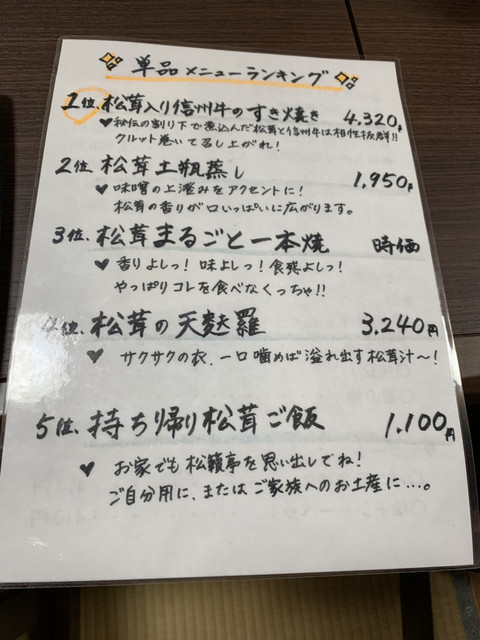 単品メニューランキング
1位、松茸入り信州牛のすき焼き 4,320円
♥ 秘伝の割り下で煮込んだ松茸と信州牛は相性抜群!!
クルット巻いて召し上がれ!
2位、松茸土瓶蒸し 1,950円
♥ 味噌の上澄みをアクセントに!
松茸の香りが口いっぱいに広がります。
3位、松茸まるごと一本焼 時価
♥ 香りよしっ!味よしっ!食感よしっ!
やっぱりコレを食べなくっちゃ!!
4位、松茸の天麩羅 3,240円
♥ サクサクの衣、一口噛めば溢れ出す松茸汁〜!
5位、持ち帰り松茸ご飯 1,100円
♥ お家でも松籟亭を思い出してね!
ご自分用に、またはご家族へのお土産に…。